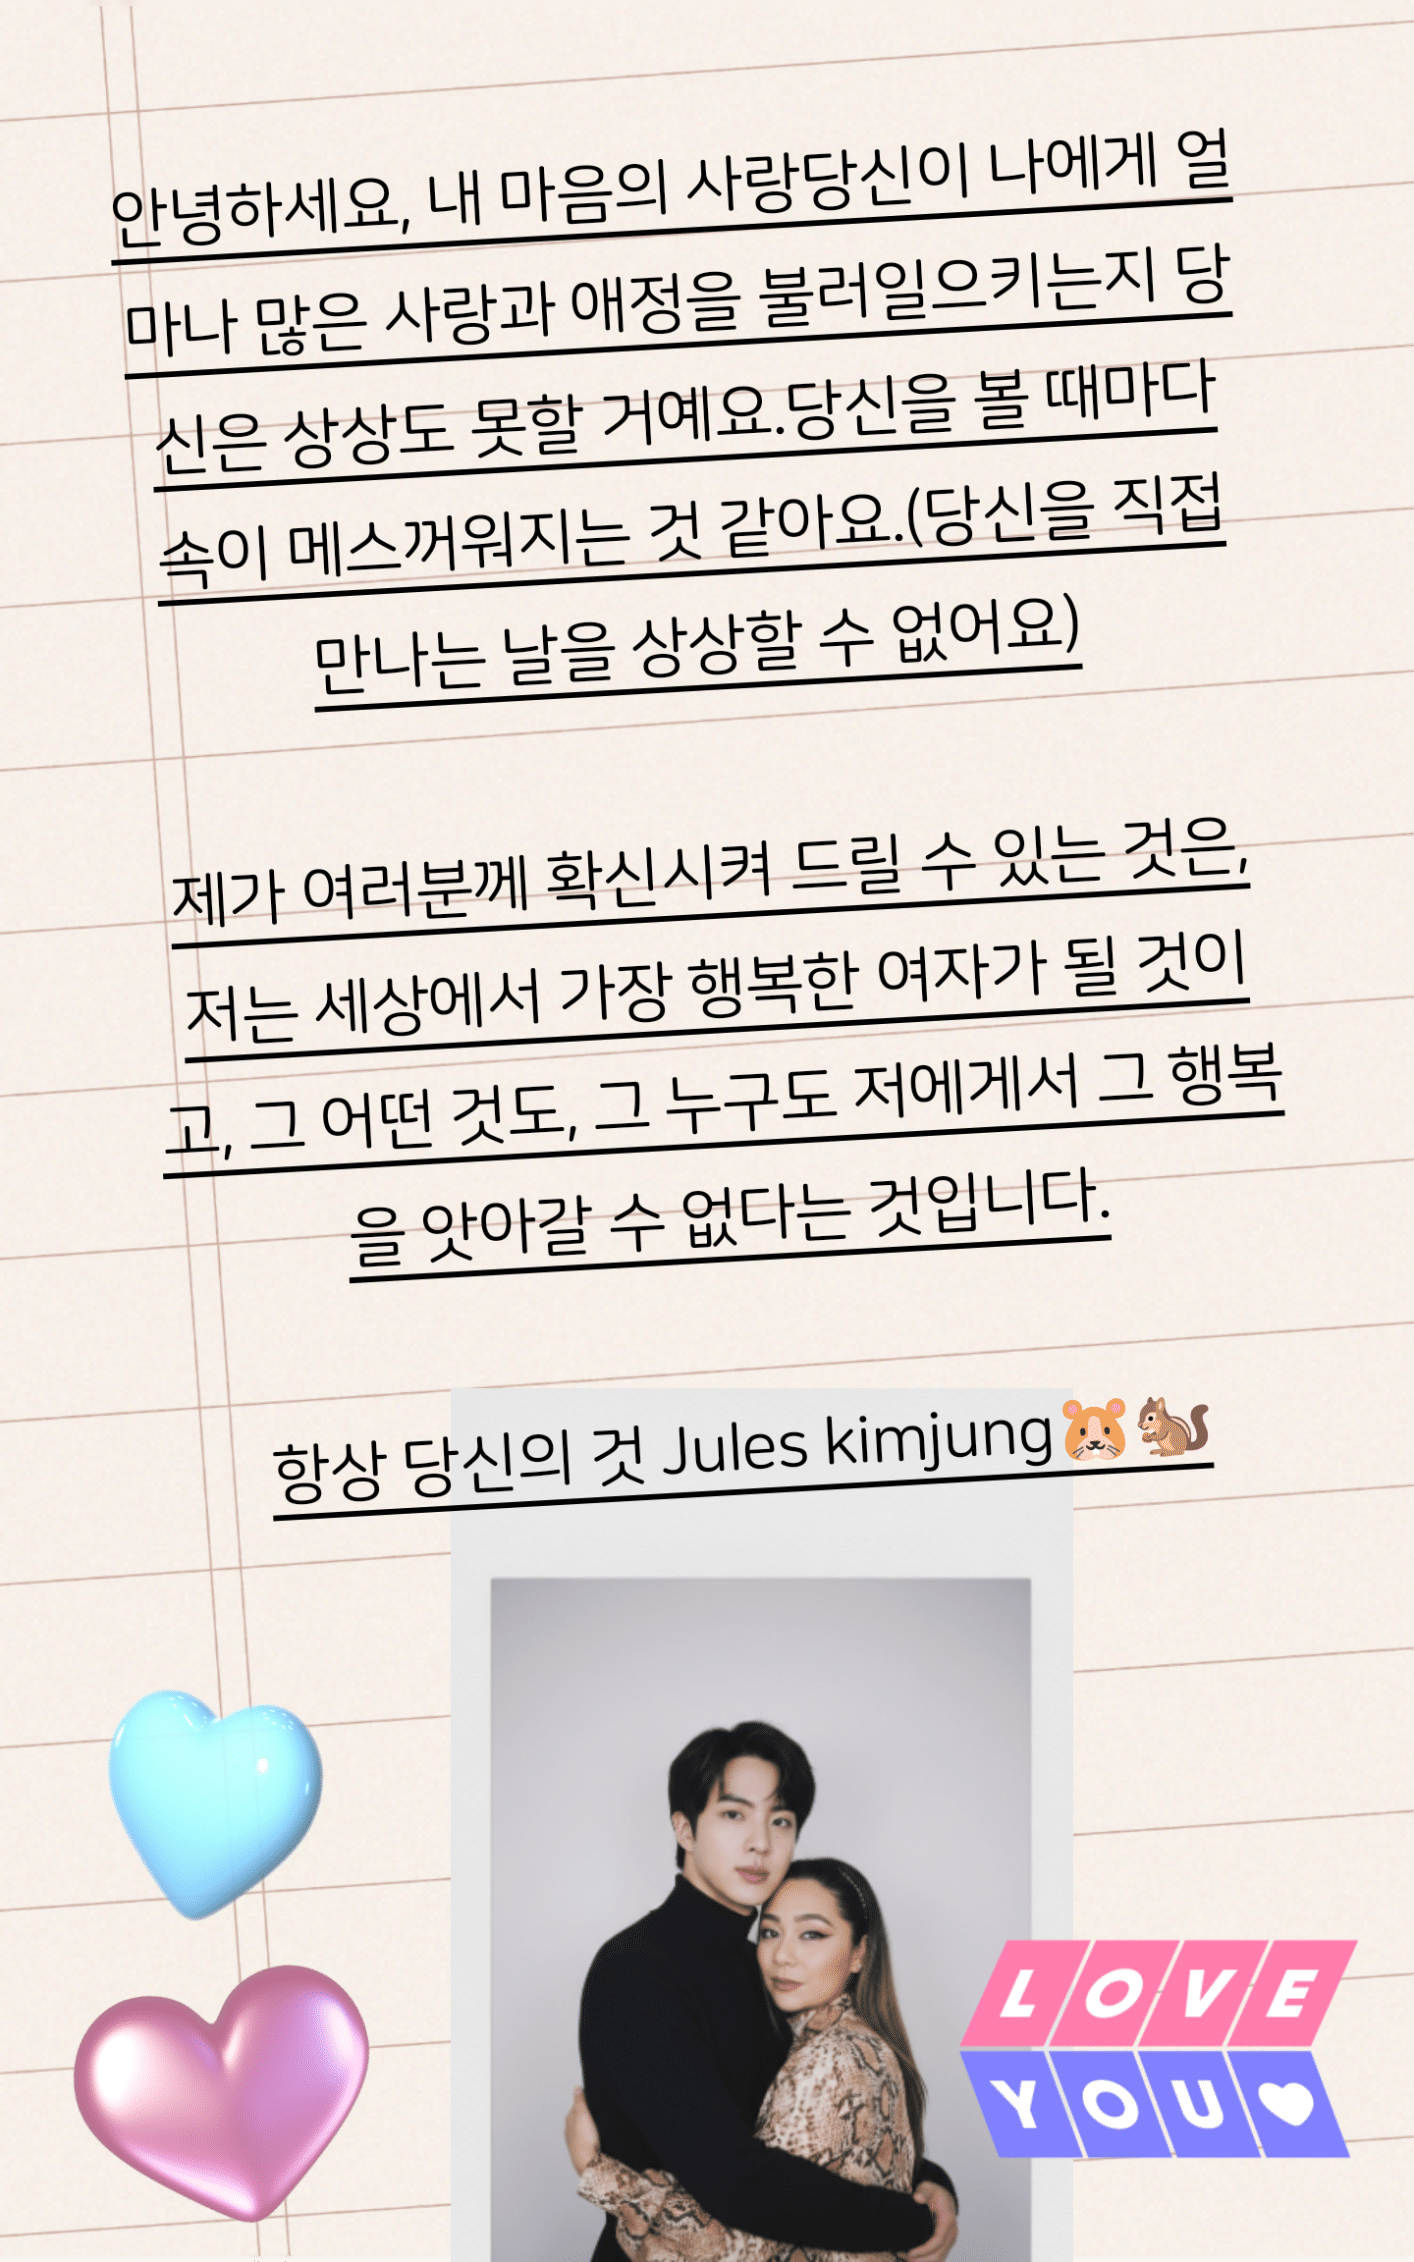 안녕하세요, 내 마음의 사랑당신이 나에게 얼
마나 많은 사랑과 애정을 불러일으키는지 당
신은 상상도 못할 거예요.당신을 볼 때마다
속이 메스꺼워지는 것 같아요.(당신을 직접
만나는 날을 상상할 수 없어요)
제가 여러분께 확신시켜 드릴 수 있는 것은,
저는 세상에서 가장 행복한 여자가 될 것이
고, 그 어떤 것도, 그 누구도 저에게서 그 행복
을 앗아갈 수 없다는 것입니다.
항상 당신의 것 Jules kimjung🐹🐿️
LOVE
YOU